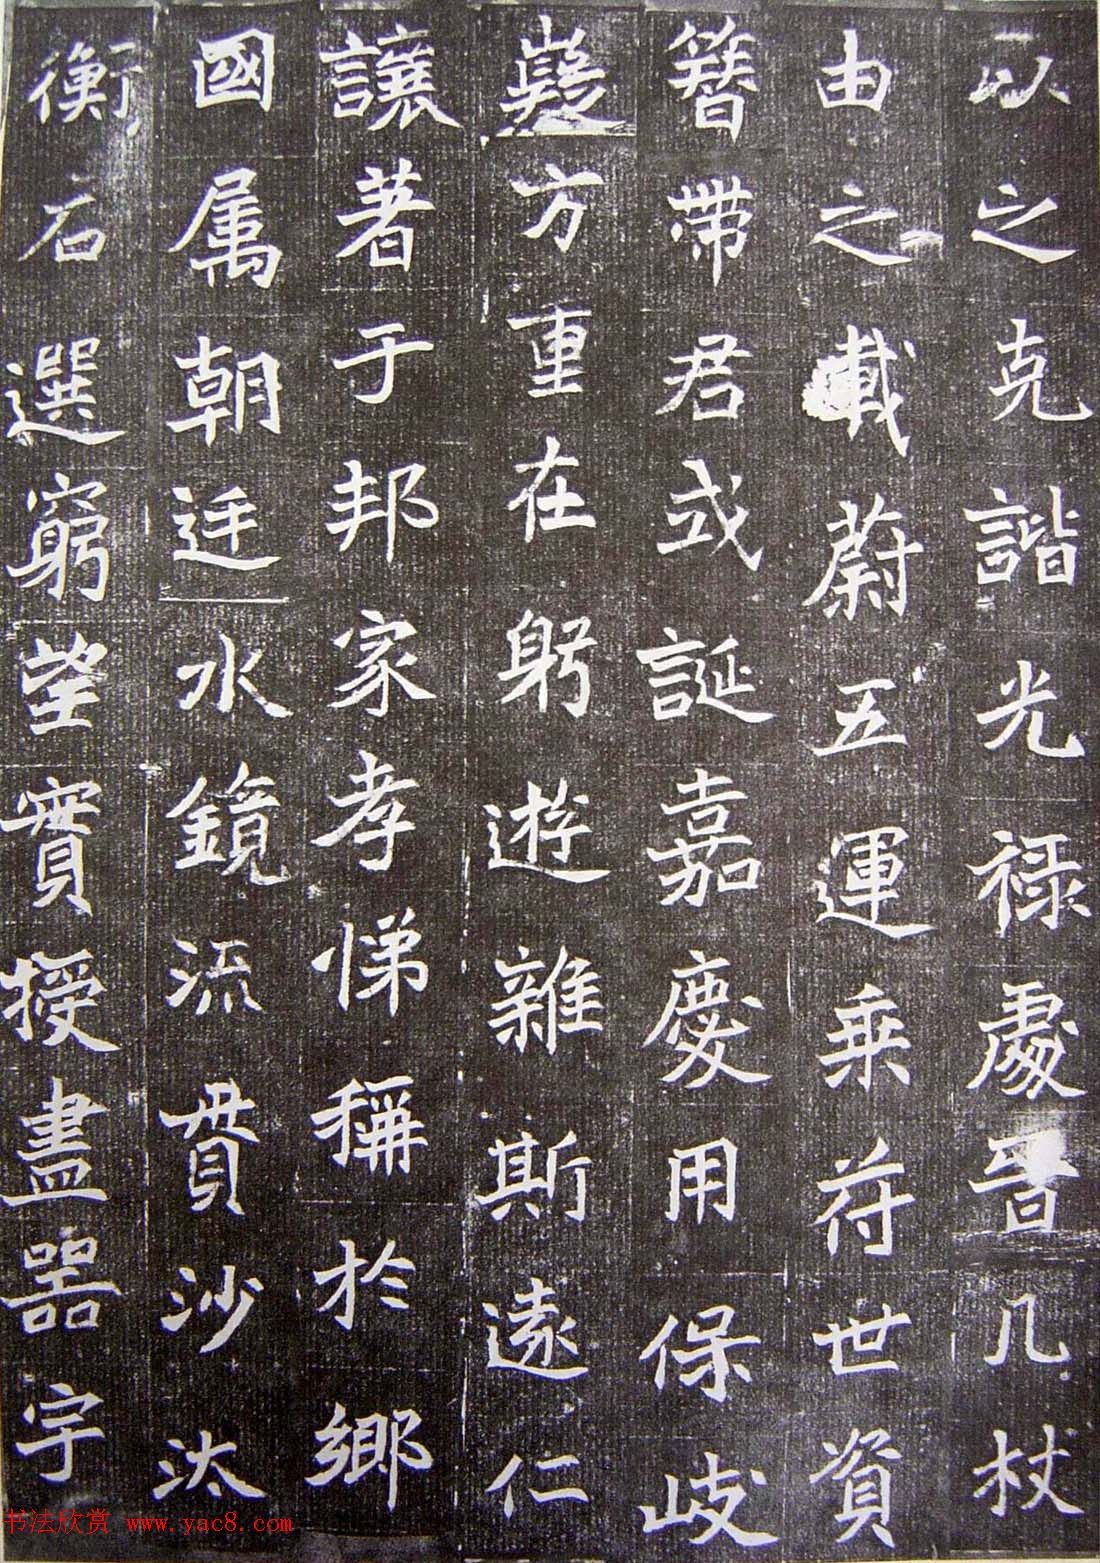 以之克諧光祿處晉几杖
由之載蔚五運乗苻世資
簪帶君或誕嘉慶用保岐
嶷方重在躬遊雜斯遠仁
讓著于邦家孝悌稱於鄉
國属朝廷水鏡流貫沙汰
衡石選窮望實授盡器宇
书法欣赏 www.yac8.com